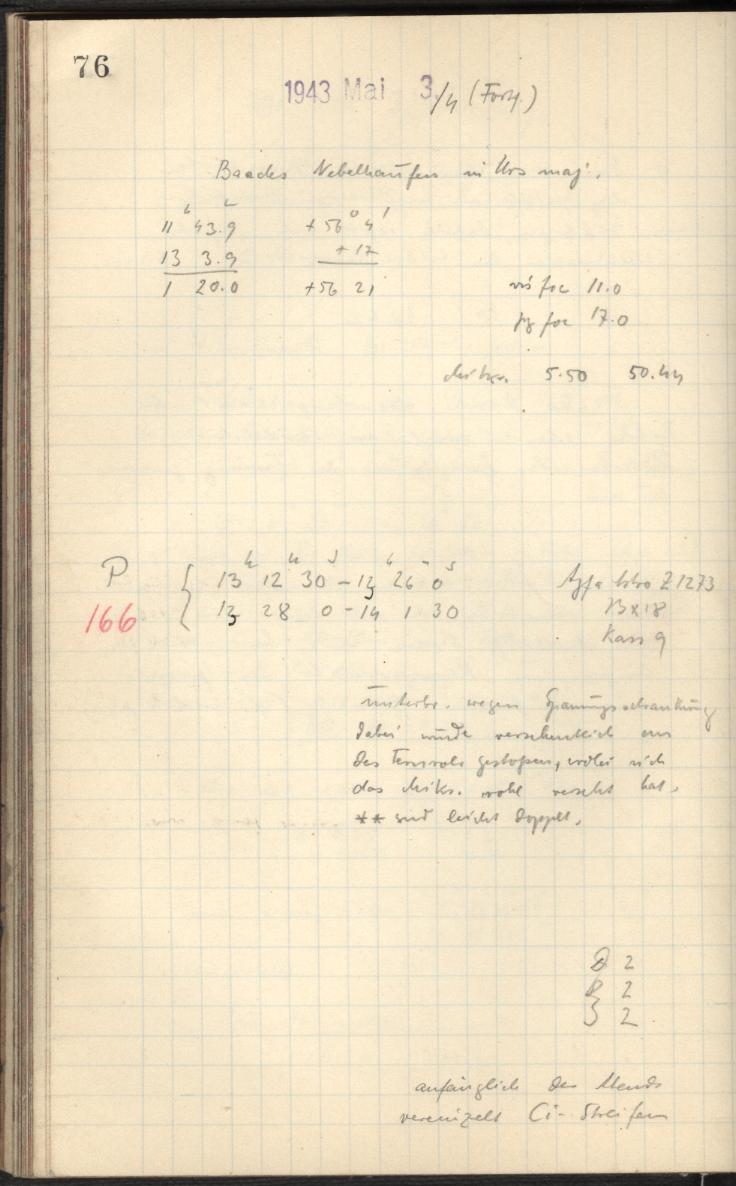 76
1943 Mai 3./4 (Forts.)
Baades Nebelhaufen in Urs maj.
11 h 43.9 m +56° 4'
13 3.9 +17
1 20.0 +56 21
vis foc 11.0
pg foc 17.0
Mikr. 5.50 50.44
P { 13 h 12 m 30 s – 13 h 26 m 0 s Agfa Astro Z1273
166 { 13 28 0 – 14 1 30 13x18
Kass 9
Unterbr. wegen Spannungsschwankung
dabei wurde versehentlich an
das Fernrohr gestoßen, wobei sich
das Mikr. wohl versetzt hat.
** sind leicht doppelt.
D 2
R 2
S 2
anfänglich des Abends
vereinzelt Ci-Streifen